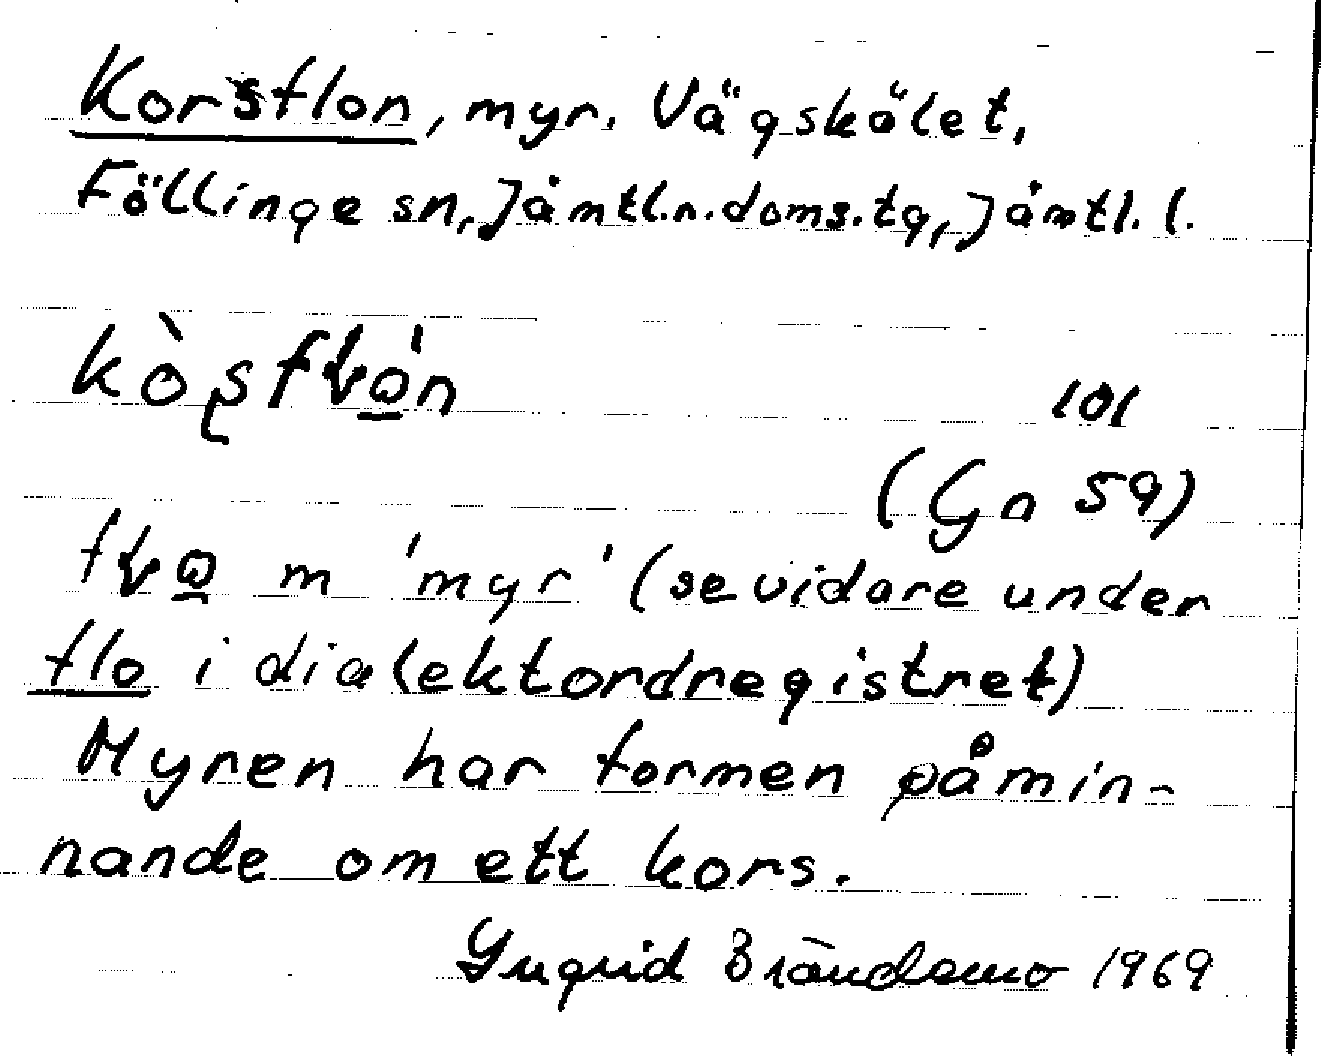 Korsflon, myr. Vägskälet,
Föllinge sn, Jämtl.n.doms.tg, Jämtl. l.
101
(Ga 59)
m 'myr' (se vidare under
flo i dialektordregistret)
Myren har formen påmin-
nande om ett kors.
Ingrid Brändemo 1969